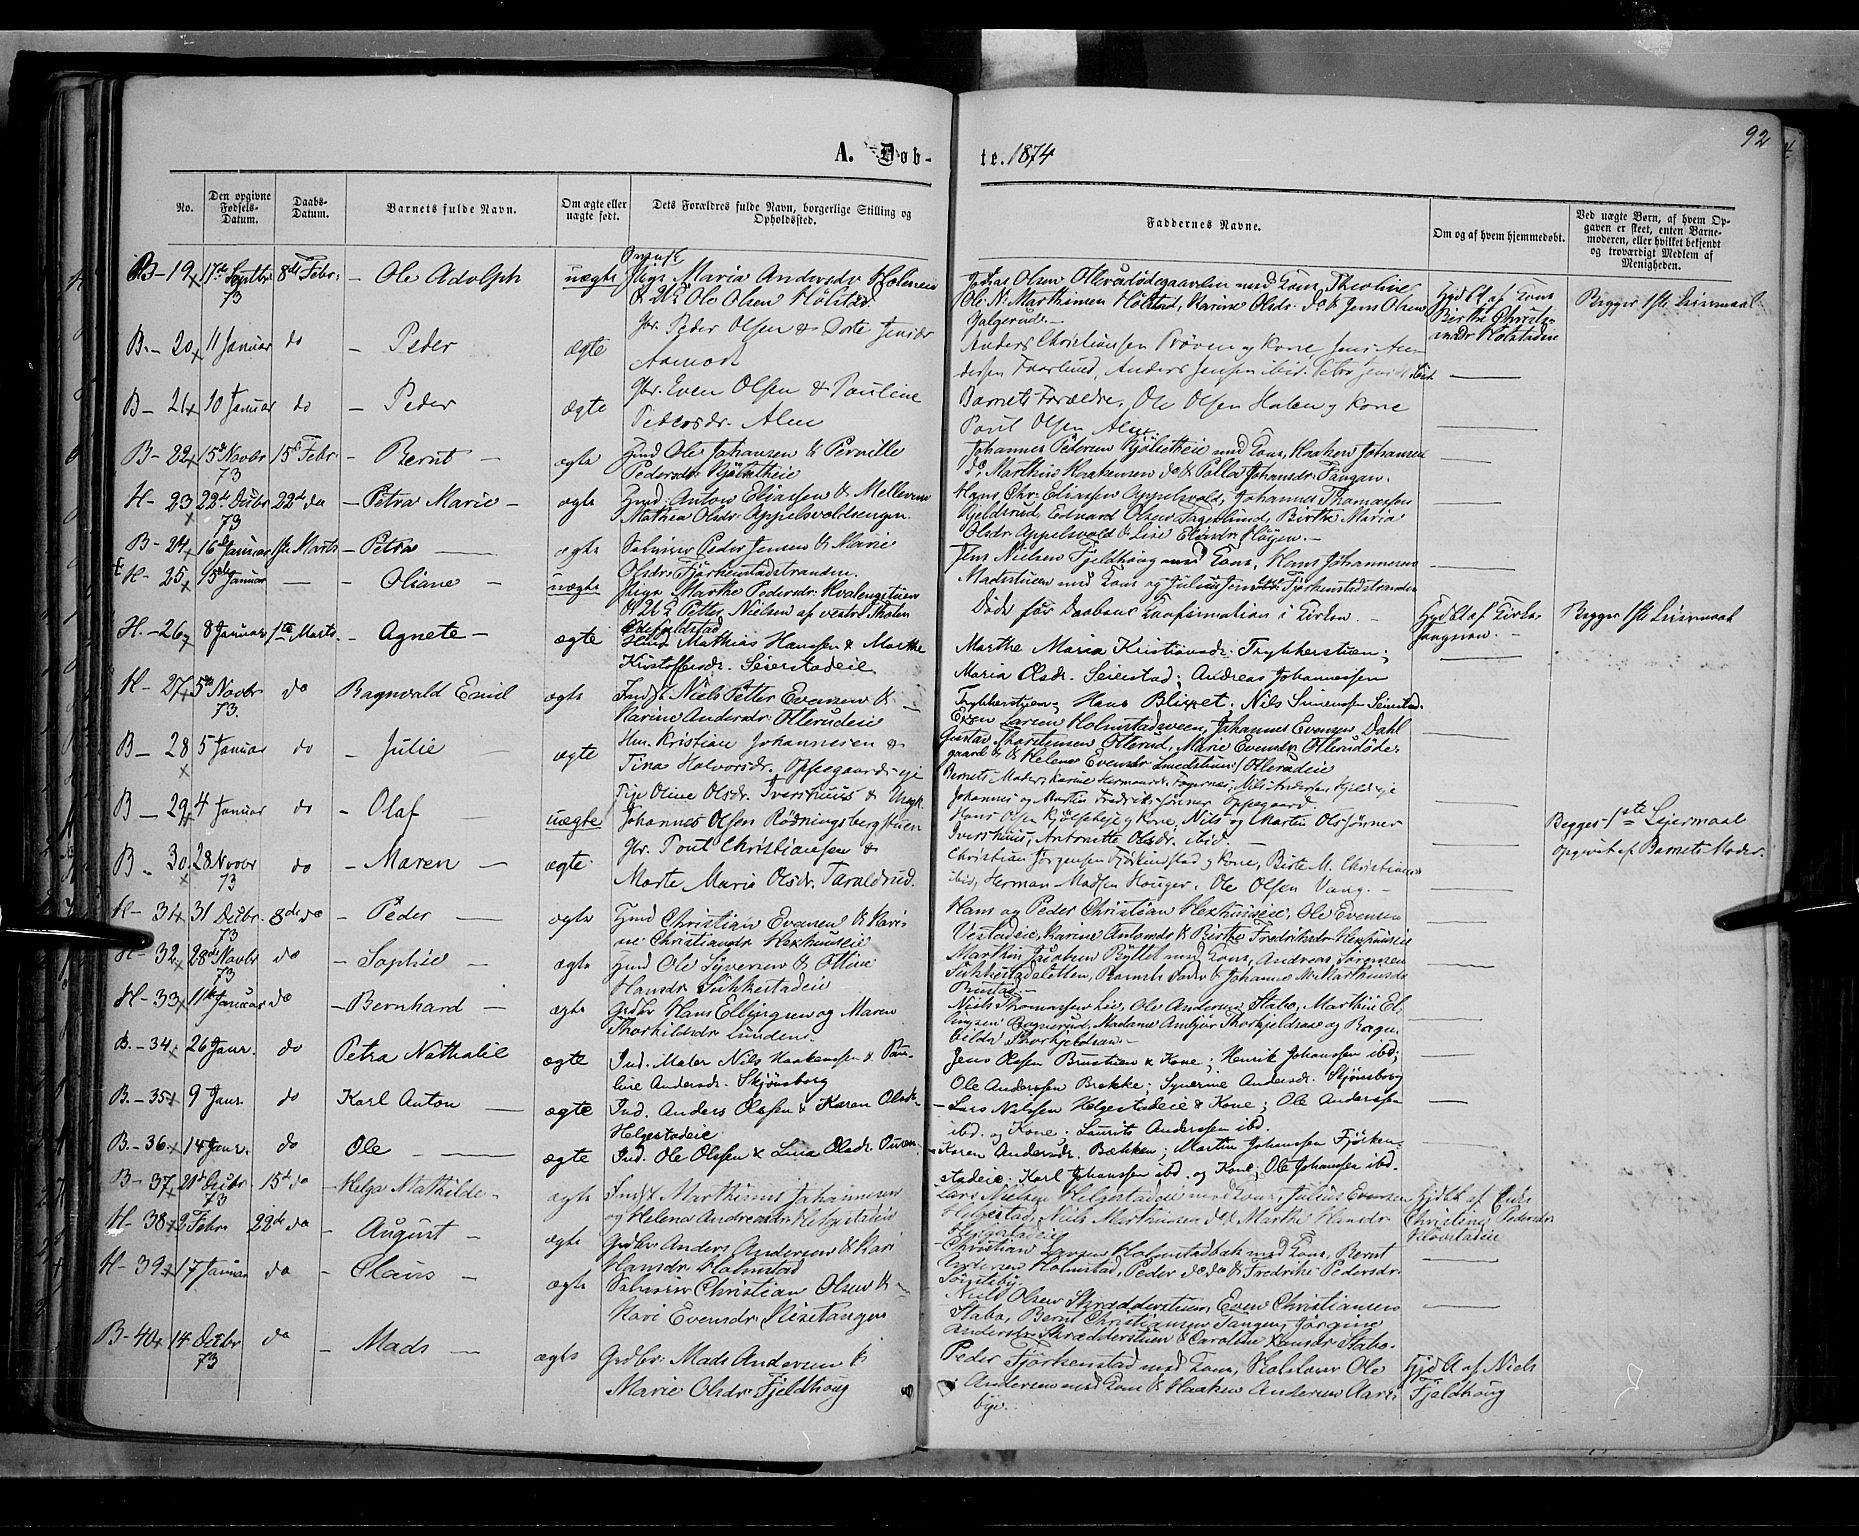 92
A. Døb-
te. 1874
No.
Den opgivne Fødsels-Datum.
Daabs-Datum.
Barnets fulde Navn.
Om ægte eller uægte født.
Dets Forældres fulde Navn, borgerlige Stilling og Opholdssted.
Faddernes Navne.
Om og af hvem hjemmedøbt.
Ved uægte Børn, af hvem Opgaven er skeet, enten Barnemoderen, eller hvilket bekjendt og troværdigt Medlem af Menigheden.
B-19 17de Septbr 73 8de Febr: - Ole Adolph uægte Pige Maria Andersdr Holeneie
& Ole Olsen Holstad
Ole N. Marthinsen Holstad, Karine Olsdr. do & Jens Olsen
Galgerud. -
Hjdbt af
Birthe
Holstadeie
Begges 1ste Leiermaal
B.- 20 11 Januar do - Peder ægte Gbr. Peder Olsen & Dorte Jensdr
Aamodt
Anders Christiansen Prøven og Kone, Jens An-
dersen Faarlund, Anders Jensen ibid.
B- 21 10 Januar do - Peder ægte Gbr. Even Olsen & Pauline
Pedersdr. Alm
Barnets Forældre, Ole Olsen Holen og Kone
Poul Olsen Alm.
B- 22 15de Novbr 73 15de Febr. - Bernt - ægte Hmd Ole Johansen & Pernille
Pedersdr.
Johannes Pedersen med Kone, Haaken Johansen
do, Marthin Haakensen do & Pollo Johansdr. Tangen.
H- 23 22de Decbr 73 22de do - Petra Marie - ægte Hmd: Anton Eliassen &
Mathea Olsdr. Appelsvoldengen.
Hans Chr. Eliassen Appelsvold, Johannes Thomassen
Gjeldsrud, Edvard Olsen Fagerlund, Birthe Maria
Olsdr. Appelsvold & Lise Haugen. -
B- 24 16de Januar 1ste Marts - Petra - ægte Selveier Peder Jensen & Marie
Olsdr. Fjørkenstadstranden.
Jens Nielsen Fjeldhaug med Kone, Hans Johannesen
Madsstuen med Kone og Julius Jensen Fjørkenstadstranden
H- 25 15de Januar - - Oliane - uægte Pige Marthe Pedersdr. Kvalengstuen
& Petter Nielsen af vestre Thoten
Døde før Daabens Confirmation i Kirken. -
Hjdbt af Kirke-
sangeren. -
Begges 1ste Leiermaal
H.- 26 8 Januar 1ste Marts. - Agnete - ægte Hmd Mathias Hansen & Marthe
Kristoffersdr. Seierstadeie
Marthe Maria Kristiansdr. Trykkerstuen;
Maria Olsdr. Seierstad; Andreas Johannessen
H- 27 5te Novbr 73. do Ragnvald Emil ægte Indst. Niels Petter Evensen & -
Karine Andersdr. Otterudeie
Trykkerstuen; Hans Blixret, Nils Simensen Seierstad.
Even Larsen Holmstadsveen, Johannes Evensen Dahl
Gustav Thorstensen Otterud, Marie Evensdr. Otterudøde-
gaard & Helene Evensdr Smedstuen/Otterudeie
B- 28 5 Januar do - Julie - ægte Hm. Kristian Johannesen &
Tina Halvorsdr. Oppegaardseje
Barnets Moder, Karine Hermansdr. Fagernæs, Nils Andersen
Johannes og Martin Fredriks-sønner Oppegaard.
B- 29 4 Januar do - Olaf uægte Pige Oline Olsdr. Ivershuus & Ungk.
Johannes Olsen Rødningsbergstuen
Hans Olsen og Kone, Nils og Martin Olssønner
Ivershuus, Antonette Olsdr. ibid. -
Begges 1ste Leiermaal
opgivet af Barnets Moder.
B- 30 28 Novbr 73 do - Maren - ægte Gbr. Poul Christiansen &
Marte Maria Olsdr. Taraldrud.
Christian Jørgensen Fjørkenstad og Kone, Birte M. Christians
ibid, Herman Madsen Houger, Ole Olsen Vang. -
H- 31 31 Decbr. 73 8de do - Peder - ægte Hmd Christian Evensen & Kari-
ne Christiansdr. Hexhuuseie
Hans og Peder Christian Hexhuuseie, Ole Evensen
Vestadeie, Karine Antonsdr & Birthe Fredriksdr. Hexhuuseie
H- 32 28de Novbr 73 do - Sophie - ægte Hmd Ole Syversen & Ottine
Hansdr. Sukkestadeie
Marthin Jacobsen Ryttet med Kone, Andreas Sørensen
Sukkestadsletten, Barnets Fader & Johanne M. Marthinsdr.
Brustad. -
H- 33 11te Januar do - Bernhard - ægte Grdbr Hans Ellingsen og Maren
Thorkildsdr. Lunden.
Niels Thomassen Lie, Ole Andersen Stabo, Marthin El-
lingsen Ragnerud, Madame Ambjør Thorkjeldsen og Ragn-
hilda Thorkjeldsen. -
B.- 34 26 Janr. do Petra Nathalie ægte Ind. Maler Nils Haakenssen & Pau-
line Andersdr. Skjønsborg
Jens Olssen Brustuen & Kone; Henrik Johanssen ibd;
Ole Anderssen Brekke. Synerine Andersdr. Skjønsborg
B.- 35 9 Janr. do Karl Anton - ægte Ind. Anders Olssen & Karen Olsdr.
Helgestadeie
- Lars Nilssen Helgestadeie & Kone; Ole Anderssen
ibd. og Kone; Laurits Anderssen ibd.
B.- 36 14 Janr. do Ole - ægte Ind. Ole Olssen & Lina Olsdr.
- Karen Andersdr. Bækken; Martin Johanssen Fjørken-
stadeie. Karl Johanssen ibd. og Kone; Ole Johanssen ibd.
B- 37 21de Decbr 73 15de do - Helga Mathilde - ægte Indst. Marthinus Johannesen
og Helena Andreasdr. Helgestadeie
Lars Nielsen Helgestadeie med Kone, Julius Evensen
Helgestad, Niels Marthinsen do & Marthe Hansdr.
Helgestadeie
Hjdbt. af Enke
Christine Pedersdr.
H- 38 3 Febr 22de do - August - ægte Grdbr. Anders Andersen & Kari
Hansdr. Holmstad
- Christian Larsen Holmstadbak med Kone, Bernt
Andersen Holmstad, Peder do do & Fredrike Pedersdr.
Sørgeleby.
H- 39 17 Januar do - Claus - ægte Selveier Christian Olsen & -
Kari Evensdr. Nisetangen
Niels Olsen Skrædderstuen, Even Christiansen
Stabo, Bernt Christiansen Tangen, Jørgine
Andersdr. Skrædderstuen & Caroline Hansdr. Stabo.
B- 40 14 Decbr 73 do - Mads - ægte Grdbr: Mads Andersen &
Marie Olsdr. Fjeldhoug
Peder Fjørkenstad med Kone, Skolelærer Ole
Andersen med Kone & Haaken Andersen Aarre-
bye.
Hjdbt af Niels
Fjeldhoug